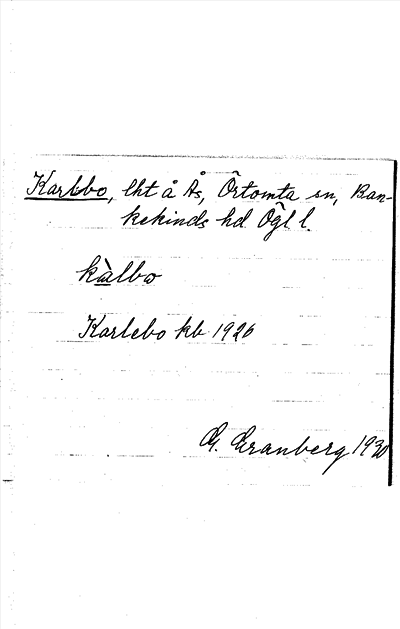 Karlebo, lht å Ås, Örtomta sn, Ban-
kekinds hd Ögl l.
kàlbo
Karlebo kb 1926
G. Granberg 1930